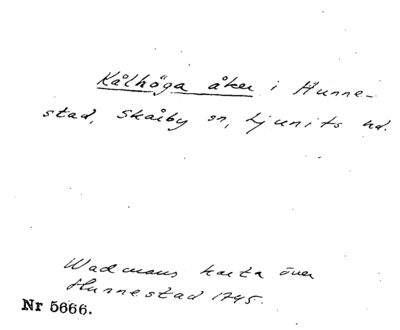 Kålhöga åker i Hunne-
stad, Skårby sn, Ljunits hd.
Wadmans karta över
Hunnestad 1745.
Nr 5666.